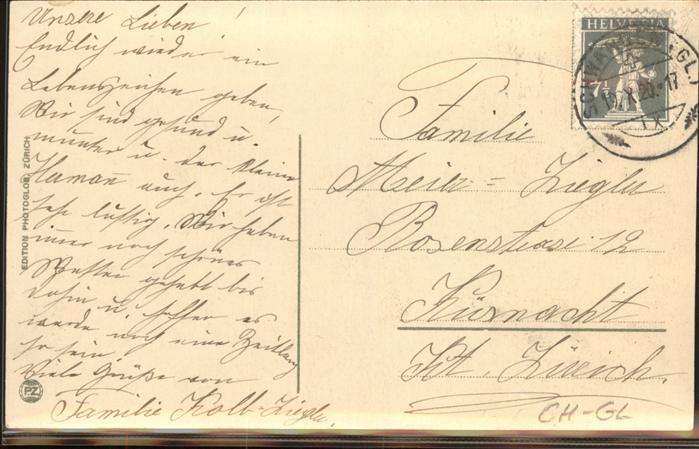 Unsere Lieben!
Endlich wieder ein
Lebenszeichen geben,
Wir sind gesund u.
munter u. der kleine
Herman auch. Er ist
sehr lustig. Wir haben
immer noch schönes
Wetter gehabt bis
dahin u. hoffen es
werde noch eine Zeitlang
so sein.
Viele Grüße von
Familie Kolb-Ziegler.
EDITION PHOTOGLOB, ZÜRICH
PZ
HELVETIA
Familie
Meier=Ziegler
Rosenstrasse 12
Küsnacht
Kt. Zürich.
CH-GL